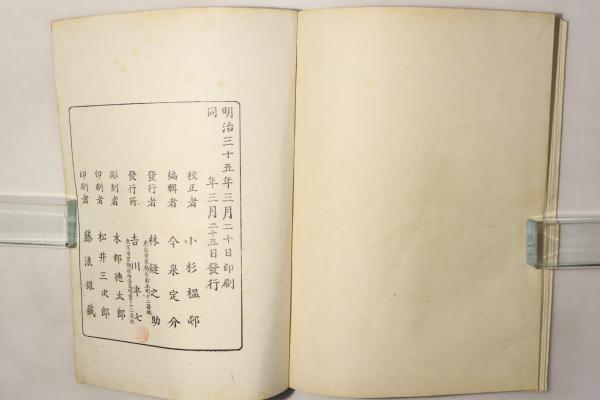 明治三十五年三月二十日印刷
同 年三月二十五日發行
校正者 小杉榲邨
編輯者 今泉定介
發行者 林縫之助
發行所 吉川半七
彫刻者 木邨德太郎
印刷者 松井三次郎
印刷者 藤浪銀藏